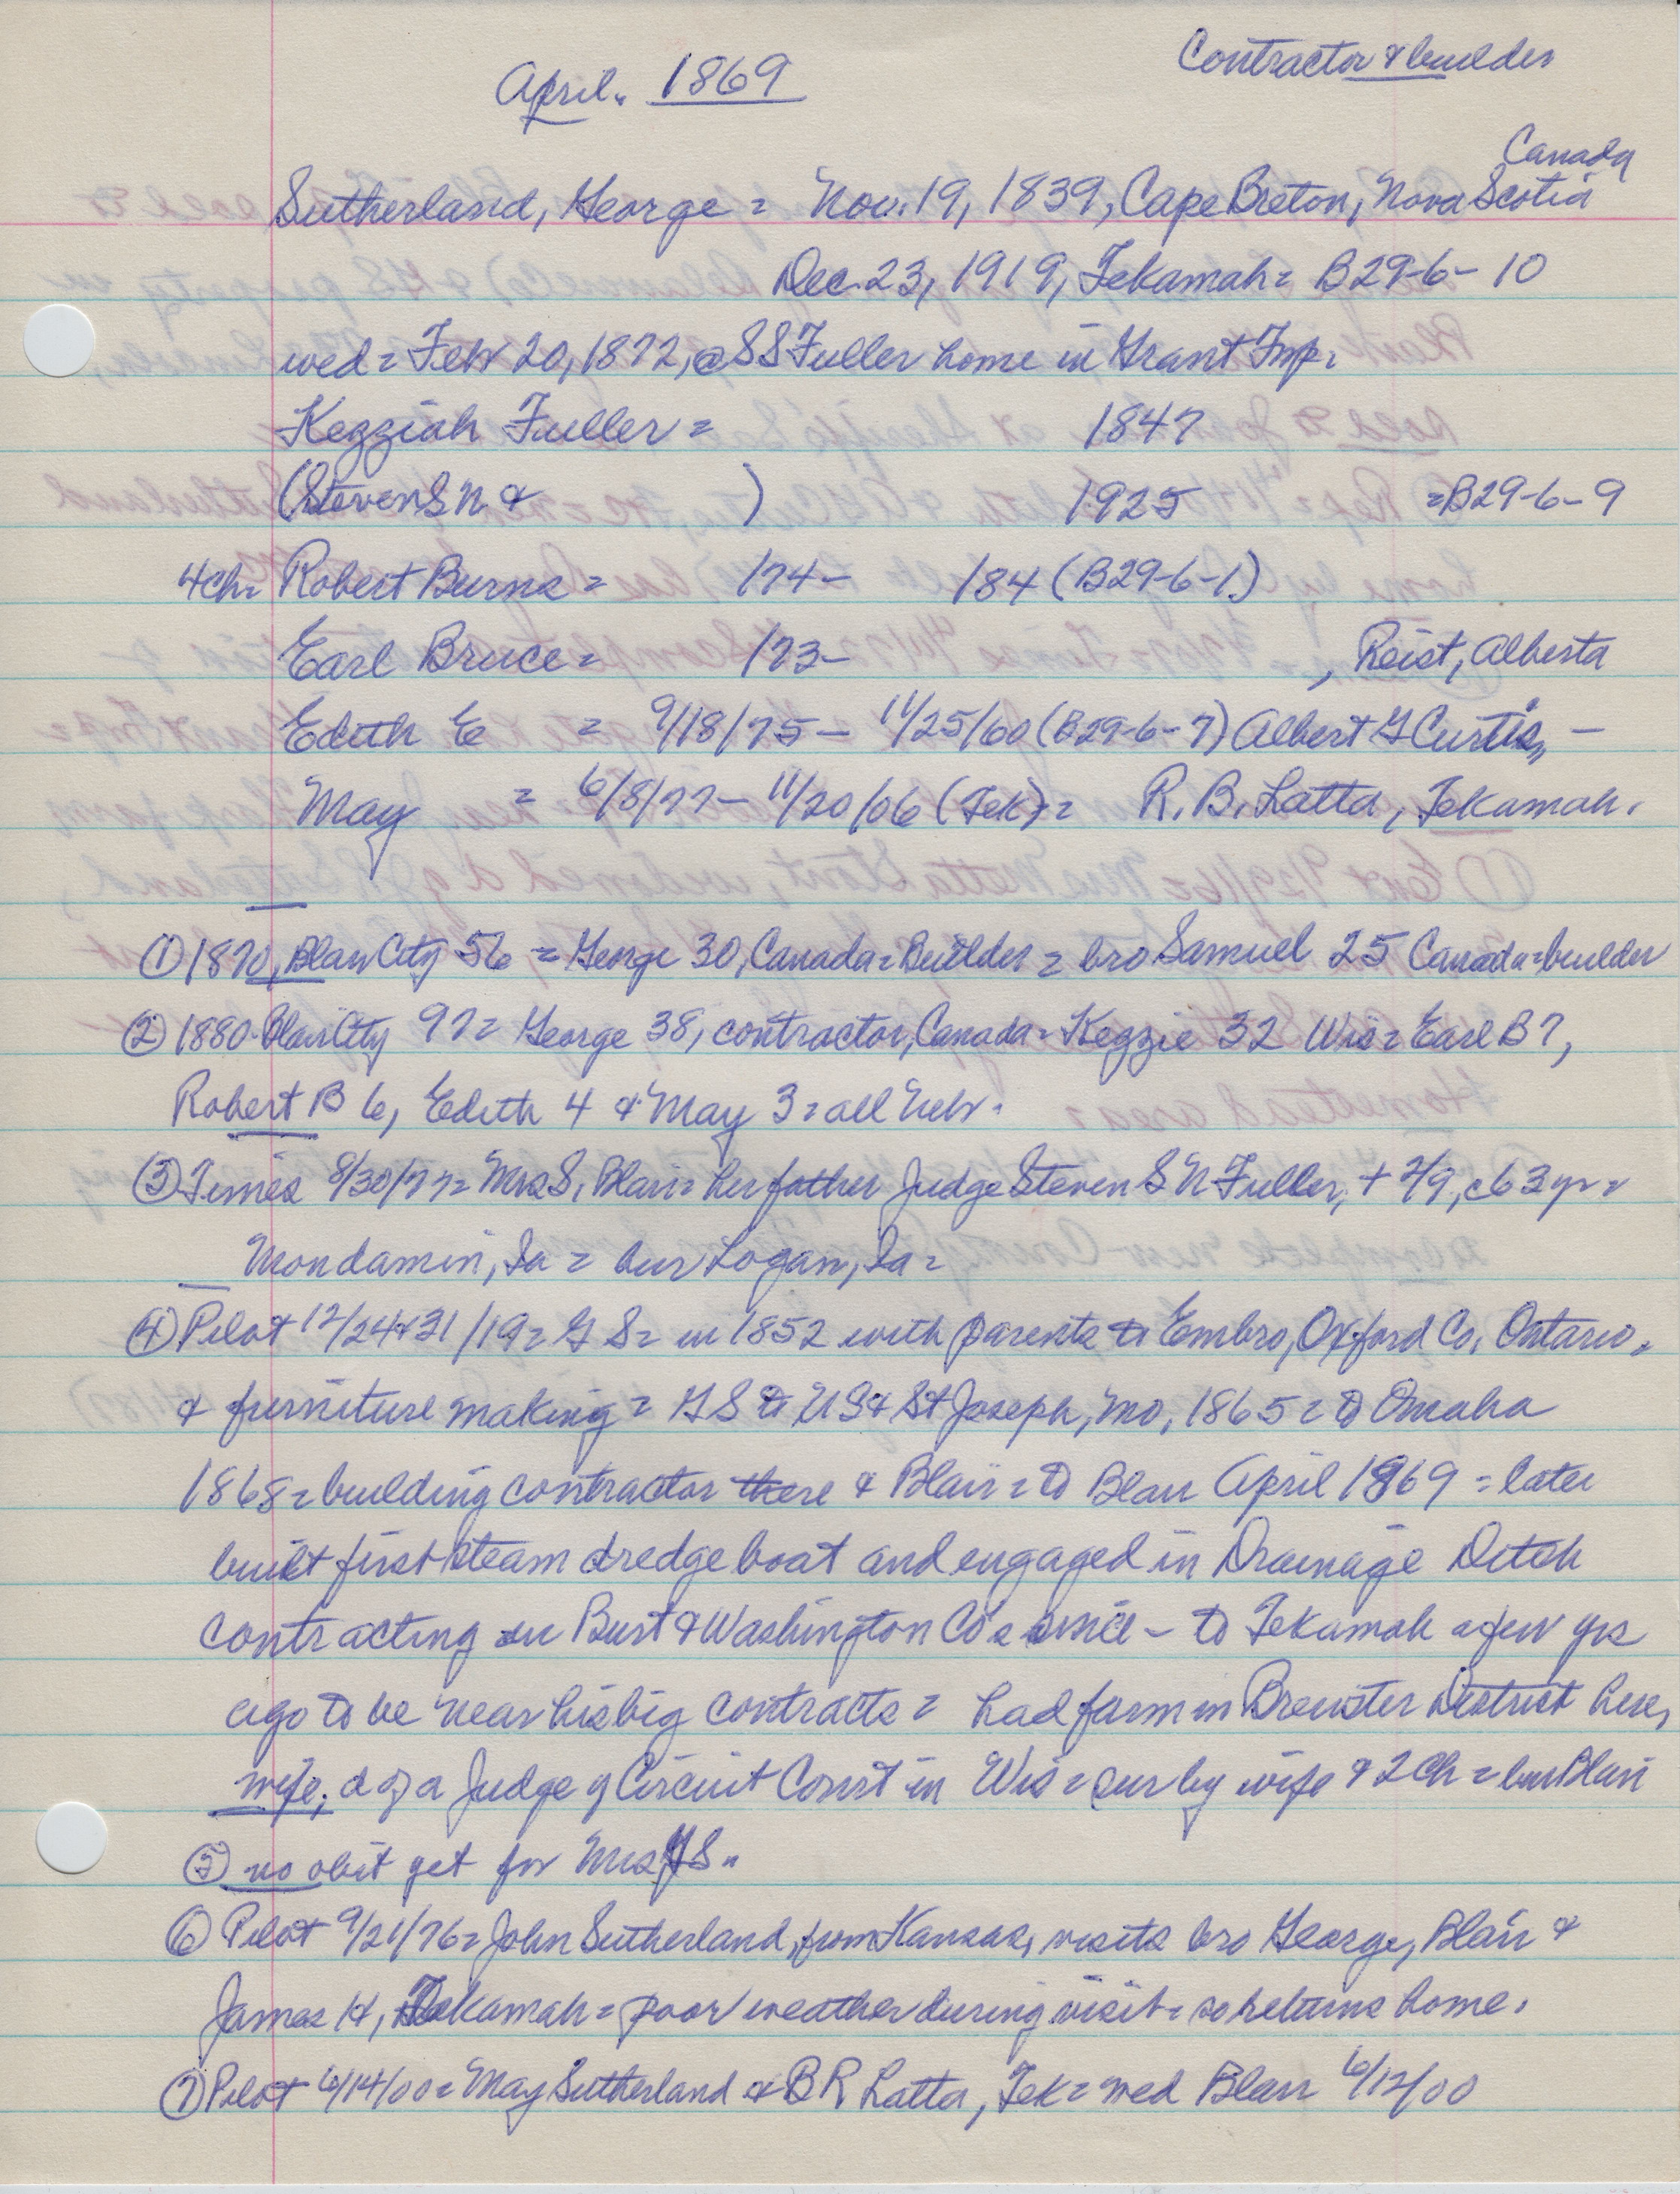 April. 1869
Contractor & builder
Canada
Sutherland, George = Nov. 19, 1839, Cape Breton, Nova Scotia
Dec. 23, 1919, Tekamah = B29-6-10
wed = Feb 20, 1872, @ SS Fuller home in Grant Tnp =
Kezziah Fuller = 1847
(Steven S N & ) 1925 = B29-6-9
4ch = Robert Burns = /74 - /84 (B29-6-1.)
Earl Bruce = /73 - , Reist, Alberta
Edith E = 9/18/75 - 11/25/60 (B29-6-7) Albert G Curtis, -
May = 6/8/77 - 11/20/06 (Tek) = R. B. Latta, Tekamah.
① 1870, Blair City 56 = George 30, Canada = Builder = bro Samuel 25 Canada = builder
② 1880 - Blair City 97 = George 38, contractor, Canada = Kezzie 32 Wis = Earl B 7,
Robert B 6, Edith 4 & May 3 = all Nebr.
③ Times 8/30/77 = Mrs S, Blair = her father Judge Steven S N Fuller, + 2/9, c 63 yr =
Mondamin, Ia = bur Logan, Ia =
④ Pilot 12/24&31/19 = G S = in 1852 with parents to Embro, Oxford Co, Ontario.
& furniture making = GS to US & St Joseph, Mo, 1865 = to Omaha
1868 = building contractor there & Blair = to Blair April 1869 = later
built first steam dredge boat and engaged in Drainage Ditch
contracting in Burt & Washington Co's since - to Tekamah a few yrs
ago to be near his big contracts = had farm in Brewster District here,
wife, d of a Judge of Circuit Court in Wis = sur by wife & 2 Ch = bur Blair
⑤ no obit yet for Mrs GS.
⑥ Pilot 9/21/76 = John Sutherland, from Kansas, visits bro George, Blair &
James H, Tekamah = poor weather during visit = so returns home.
⑦ Pilot 6/14/00 = May Sutherland & B R Latta, Tek = wed Blair 6/12/00